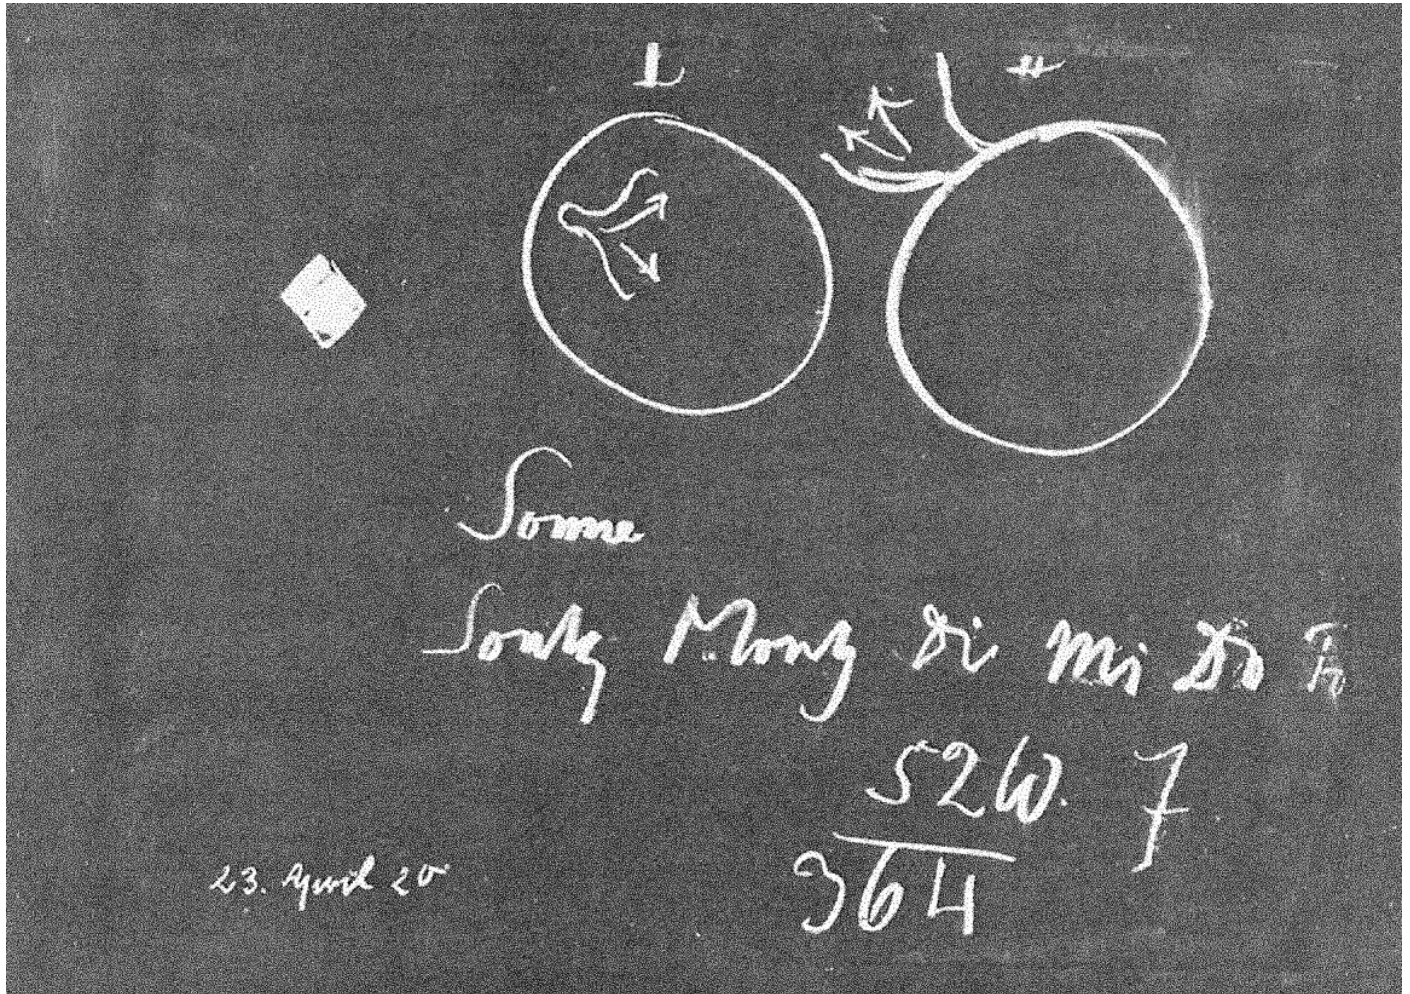 Sonne
Sontg Montg Di Mi Do Fr
52 W. 7
364
23. April 20